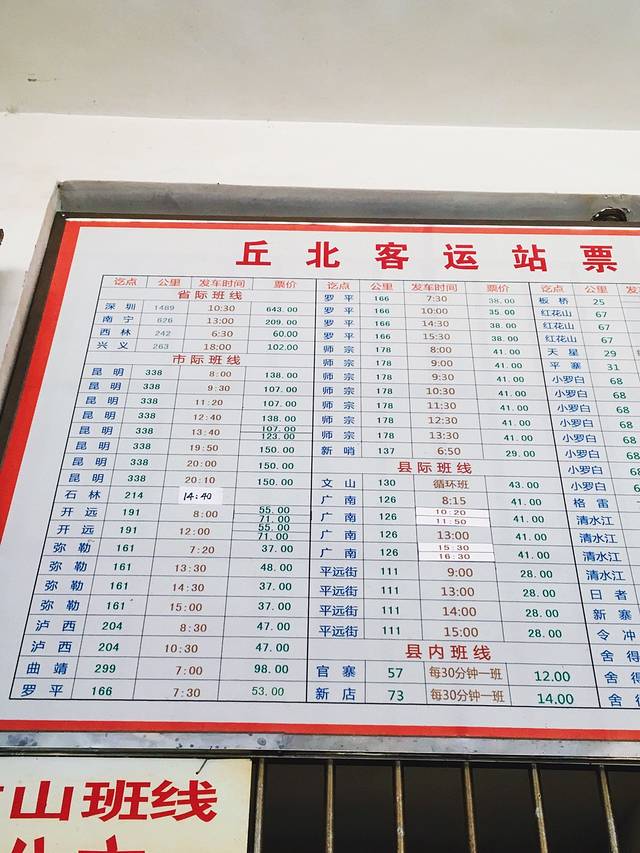 丘北客运站票
讫点 公里 发车时间 票价
省际班线
深圳 1489 10:30 643.00
南宁 626 13:00 209.00
西林 242 6:30 60.00
兴义 263 18:00 102.00
市际班线
昆明 338 8:00 138.00
昆明 338 9:30 107.00
昆明 338 11:20 107.00
昆明 338 12:40 138.00
昆明 338 13:40 107.00 123.00
昆明 338 19:50 150.00
昆明 338 20:00 150.00
昆明 338 20:10 150.00
石林 214 14:40
开远 191 8:00 55.00 71.00
开远 191 12:00 55.00 71.00
弥勒 161 7:20 37.00
弥勒 161 13:30 48.00
弥勒 161 14:30 37.00
弥勒 161 15:00 37.00
泸西 204 8:30 47.00
泸西 204 10:30 47.00
曲靖 299 7:00 98.00
罗平 166 7:30 53.00
讫点 公里 发车时间 票价
罗平 166 7:30 38.00
罗平 166 10:00 35.00
罗平 166 14:30 38.00
罗平 166 15:30 38.00
师宗 178 8:00 41.00
师宗 178 9:00 41.00
师宗 178 9:30 41.00
师宗 178 10:30 41.00
师宗 178 11:30 41.00
师宗 178 12:30 41.00
师宗 178 13:30 41.00
新哨 137 6:50 29.00
县际班线
文山 130 循环班 43.00
广南 126 8:15 41.00
广南 126 10:20 11:50 41.00
广南 126 13:00 41.00
广南 126 15:30 16:30 41.00
平远街 111 9:00 28.00
平远街 111 13:00 28.00
平远街 111 14:00 28.00
平远街 111 15:00 28.00
县内班线
官寨 57 每30分钟一班 12.00
新店 73 每30分钟一班 14.00
讫点 公里 发
板桥 25
红花山 67
红花山 67
红花山 67
天星 29
平寨 31
小罗白 68
小罗白 68
小罗白 68
小罗白 68
小罗白 68
小罗白 68
小罗白 68
格雷
清水江
清水江
清水江
日者
新寨
令冲
舍得
舍得
舍得
山班线